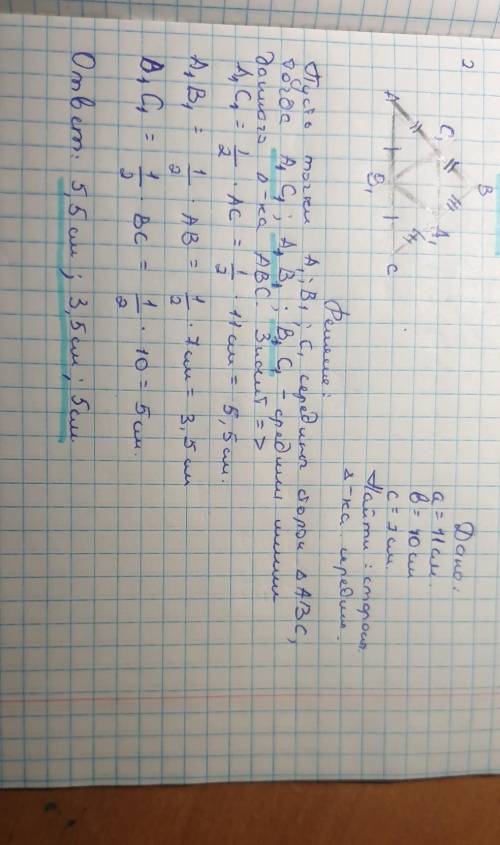 2
B
C₁
A₁
A
B₁
C
Дано:
a = 11 см.
в = 10 см
c = 7 см.
Найти: стороны
Δ-ка середин.
Решение:
Пусть точки A₁; B₁; C₁ середины сторон ΔABC,
тогда A₁C₁; A₁B₁; B₁C₁ - средние линии
данного Δ-ка ABC. Значит =>
A₁C₁ = 1/2 · AC = 1/2 · 11 см = 5,5 см.
A₁B₁ = 1/2 · AB = 1/2 · 7 см = 3,5 см
B₁C₁ = 1/2 · BC = 1/2 · 10 = 5 см.
Ответ: 5,5 см; 3,5 см; 5 см